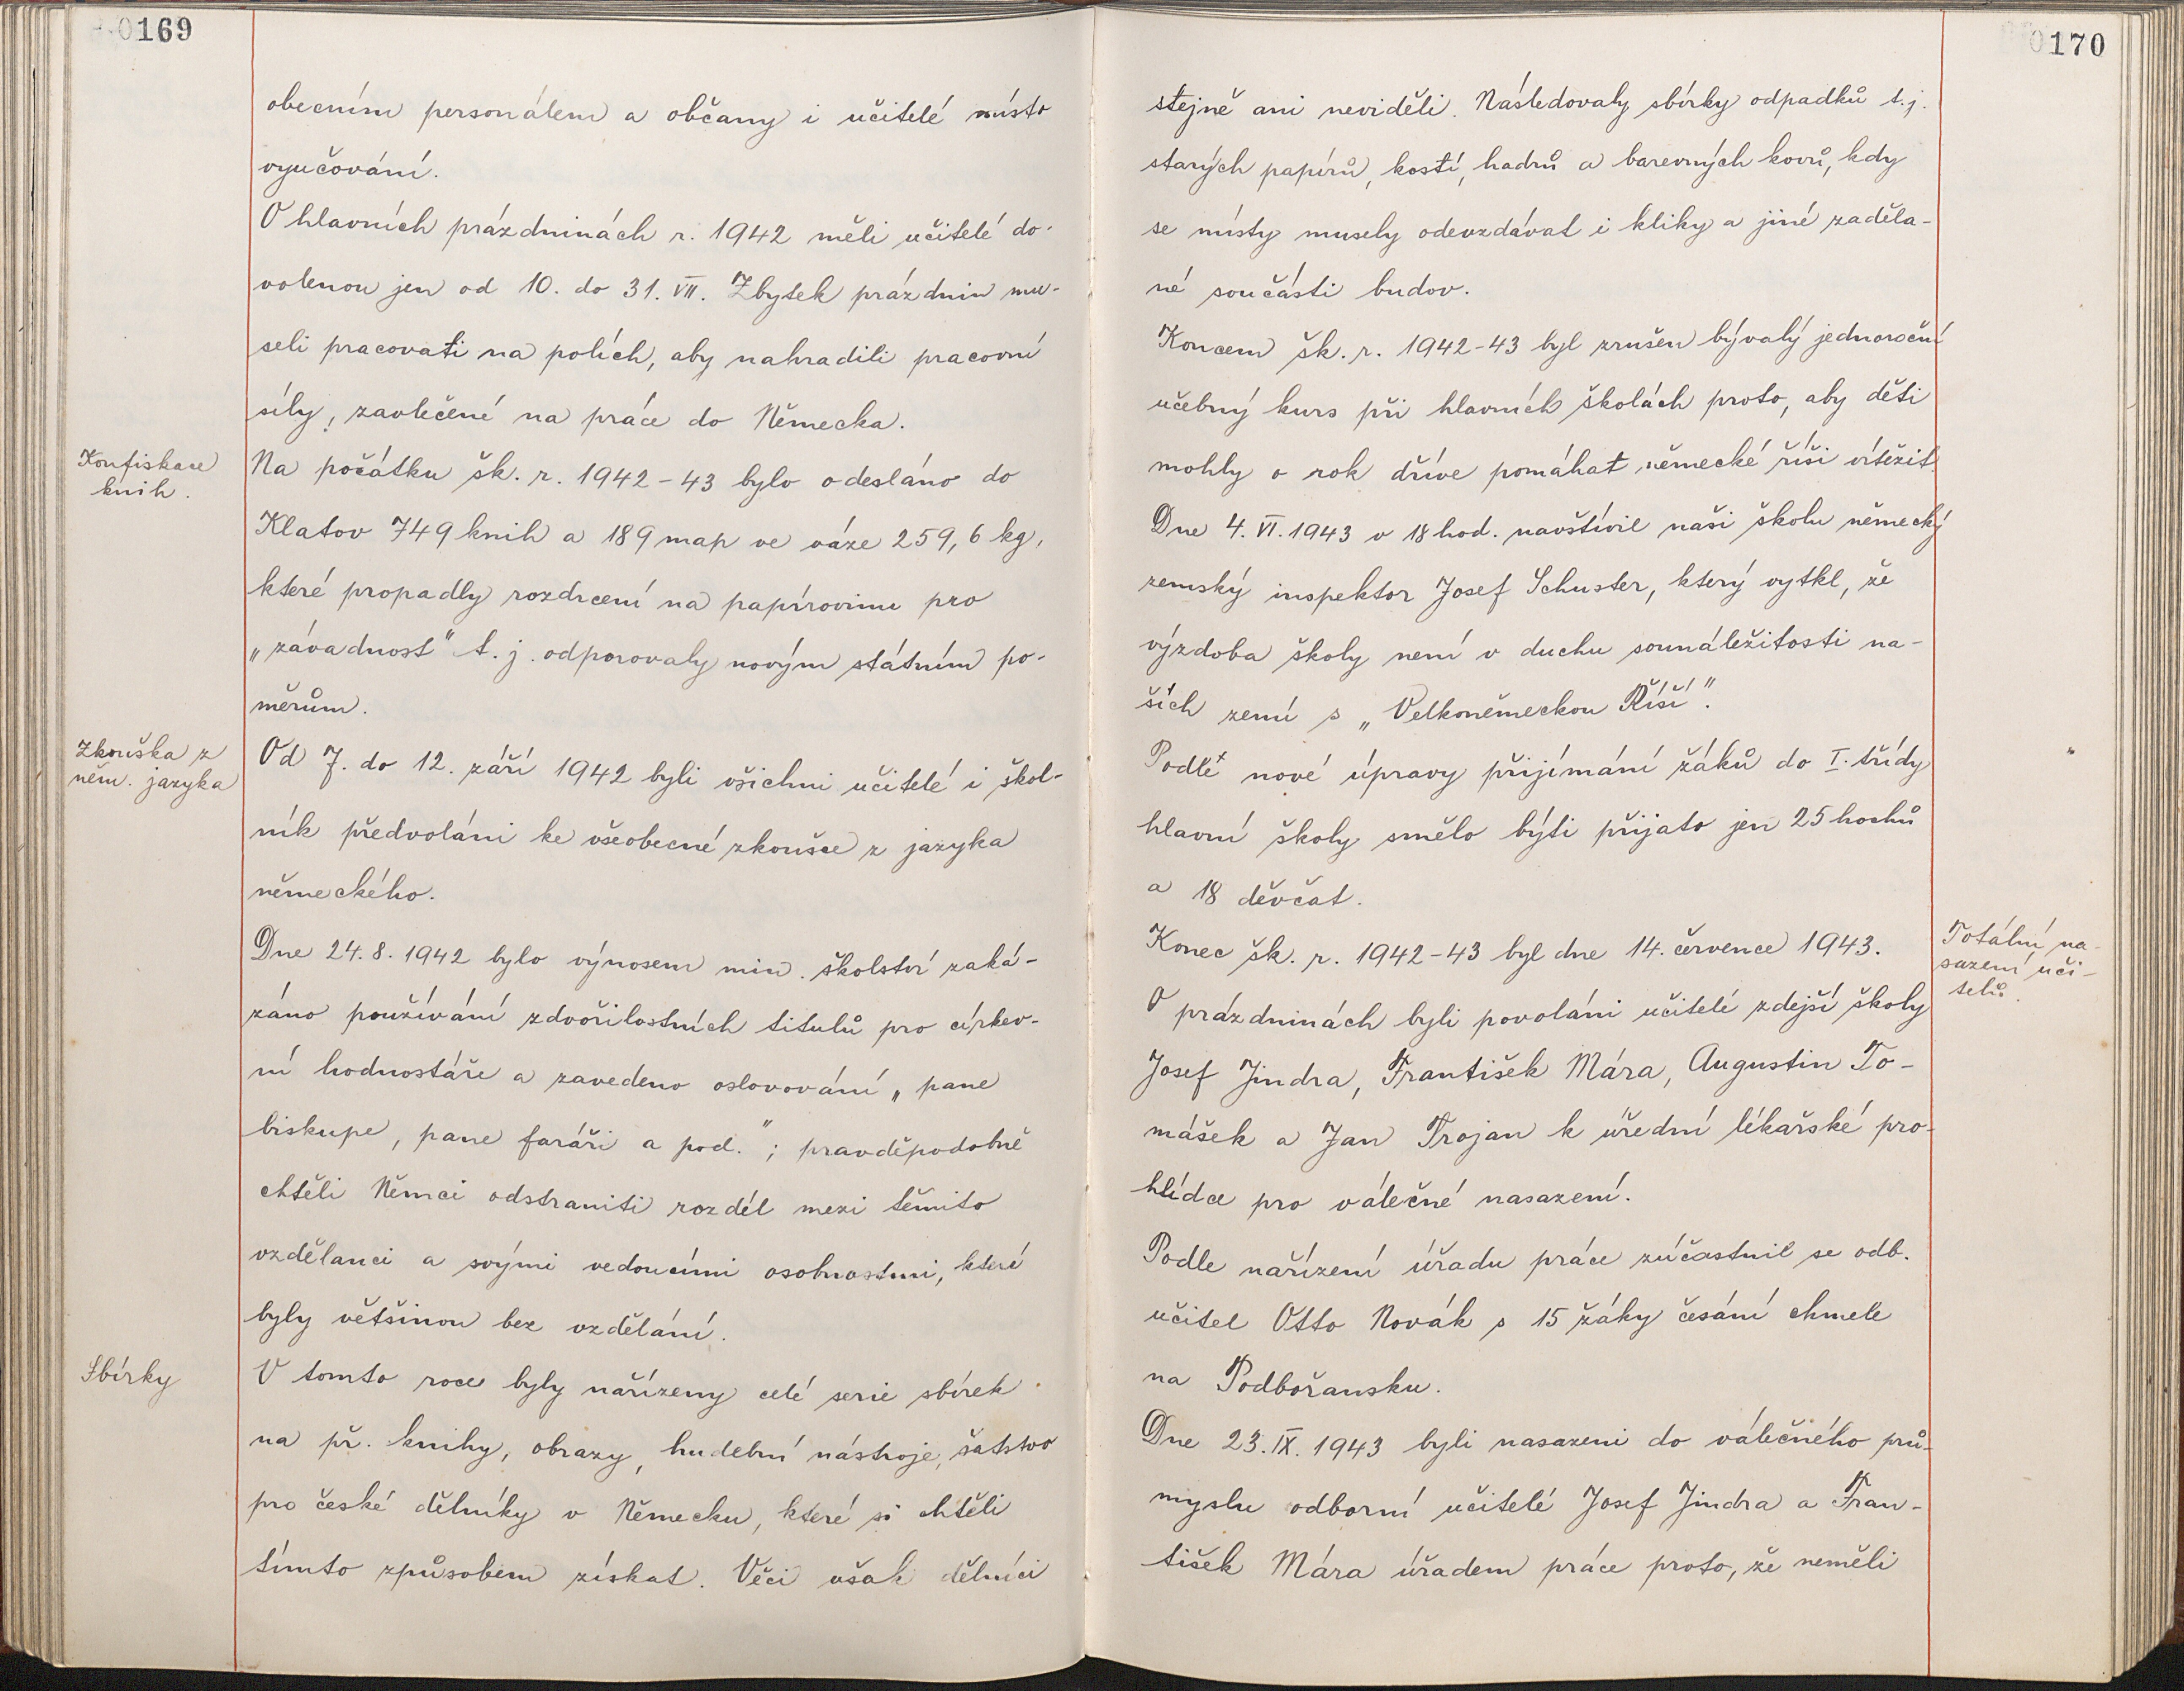 0169
obecním personálem a občany i učitelé místo
vyučování.
O hlavních prázdninách r. 1942 měli učitelé do-
volenou jen od 10. do 31. VII. Zbytek prázdnin mu-
seli pracovati na polích, aby nahradili pracovní
síly, zavlečené na práce do Německa.
Konfiskace
knih.
Na počátku šk. r. 1942-43 bylo odesláno do
Klatov 749 knih a 189 map ve váze 259,6 kg,
které propadly rozdrcení na papírovinu pro
„závadnost" t. j. odporovaly novým státním po-
měrům.
Zkouška z
něm. jazyka
Od 7. do 12. září 1942 byli všichni učitelé i škol-
ník předvoláni ke všeobecné zkoušce z jazyka
německého.
Dne 24. 8. 1942 bylo výnosem min. školství zaká-
záno používání zdvořilostních titulů pro církev-
ní hodnostáře a zavedeno oslovování „pane
biskupe, pane faráři a pod."; pravděpodobně
chtěli Němci odstraniti rozdíl mezi těmito
vzdělanci a svými vedoucími osobnostmi, které
byly většinou bez vzdělání.
Sbírky
V tomto roce byly nařízeny celé serie sbírek
na př. knihy, obrazy, hudební nástroje, šatstvo
pro české dělníky v Německu, které si chtěli
tímto způsobem získat. Věci však dělníci
0170
stejně ani neviděli. Následovaly sbírky odpadků t. j.
starých papírů, kostí, hadrů a barevných kovů, kdy
se místy musely odevzdávat i kliky a jiné zaděla-
né součásti budov.
Koncem šk. r. 1942-43 byl zrušen bývalý jednoroční
učebný kurs při hlavních školách proto, aby děti
mohly o rok dříve pomáhat německé říši vítězit.
Dne 4. VI. 1943 v 18 hod. navštívil naši školu německý
zemský inspektor Josef Schuster, který vytkl, že
výzdoba školy není v duchu sounáležitosti na-
ších zemí s „Velkoněmeckou Říší".
Podle nové úpravy přijímání žáků do I. třídy
hlavní školy smělo býti přijato jen 25 hochů
a 18 děvčat.
Konec šk. r. 1942-43 byl dne 14. července 1943.
Totální na-
sazení uči-
telů.
O prázdninách byli povoláni učitelé zdejší školy
Josef Jindra, František Mára, Augustin To-
mášek a Jan Trojan k úřední lékařské pro-
hlídce pro válečné nasazení.
Podle nařízení úřadu práce zúčastnil se odb.
učitel Otto Novák s 15 žáky česání chmele
na Podbořansku.
Dne 23. IX. 1943 byli nasazeni do válečného prů-
myslu odborní učitelé Josef Jindra a Fran-
tišek Mára úřadem práce proto, že neměli